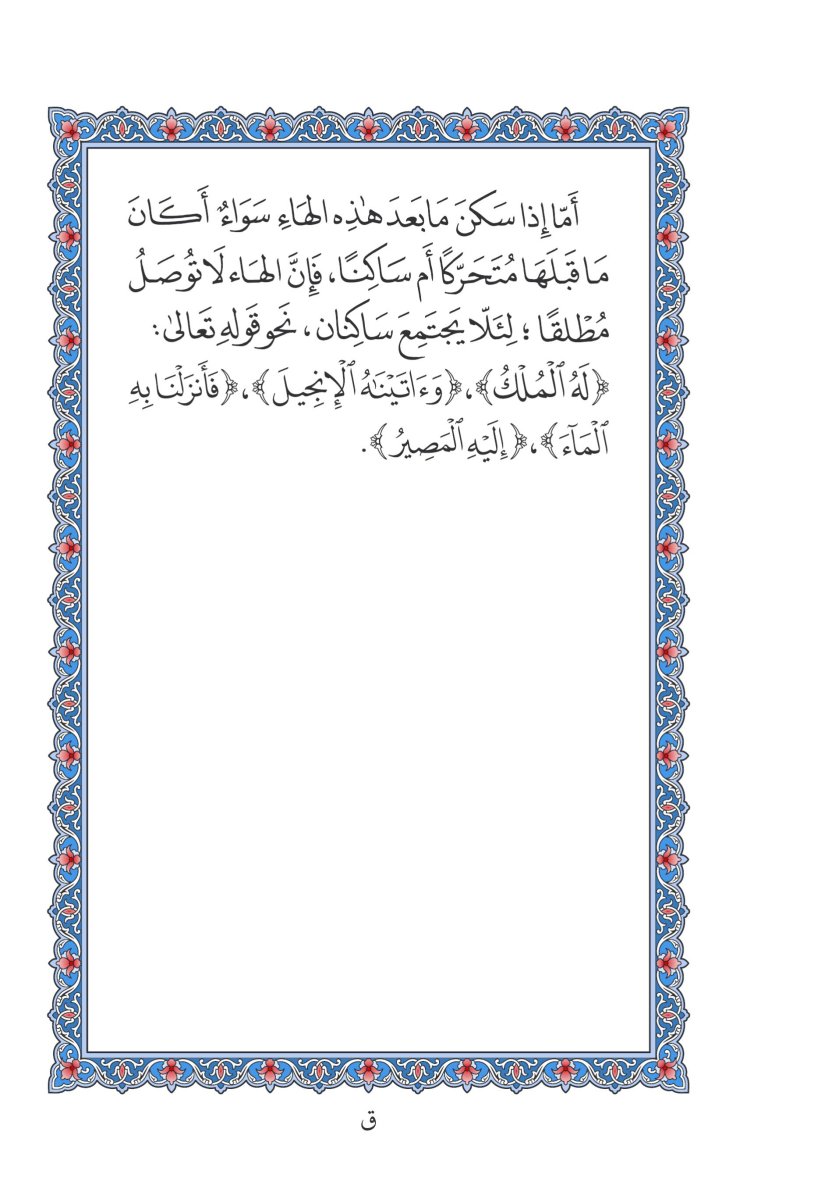 أَمّا إِذا سَكنَ مَا بَعدَ هٰذِه الهَاءِ سَوَاءٌ أَكَانَ
مَا قَبلَهَا مُتَحَرّكًا أَم سَاكِنًا، فَإِنَّ الهَاء لَا تُوصَلُ
مُطْلقًا ؛ لِئَلّا يَجتَمِعَ سَاكِنان، نَحو قَولهِ تَعَالىٰ:
﴿لَهُ ٱلْمُلْكُ﴾، ﴿وَءَاتَيْنَٰهُ ٱلْإِنجِيلَ﴾، ﴿فَأَنزَلْنَا بِهِ
ٱلْمَآءَ﴾، ﴿إِلَيْهِ ٱلْمَصِيرُ﴾.
ق